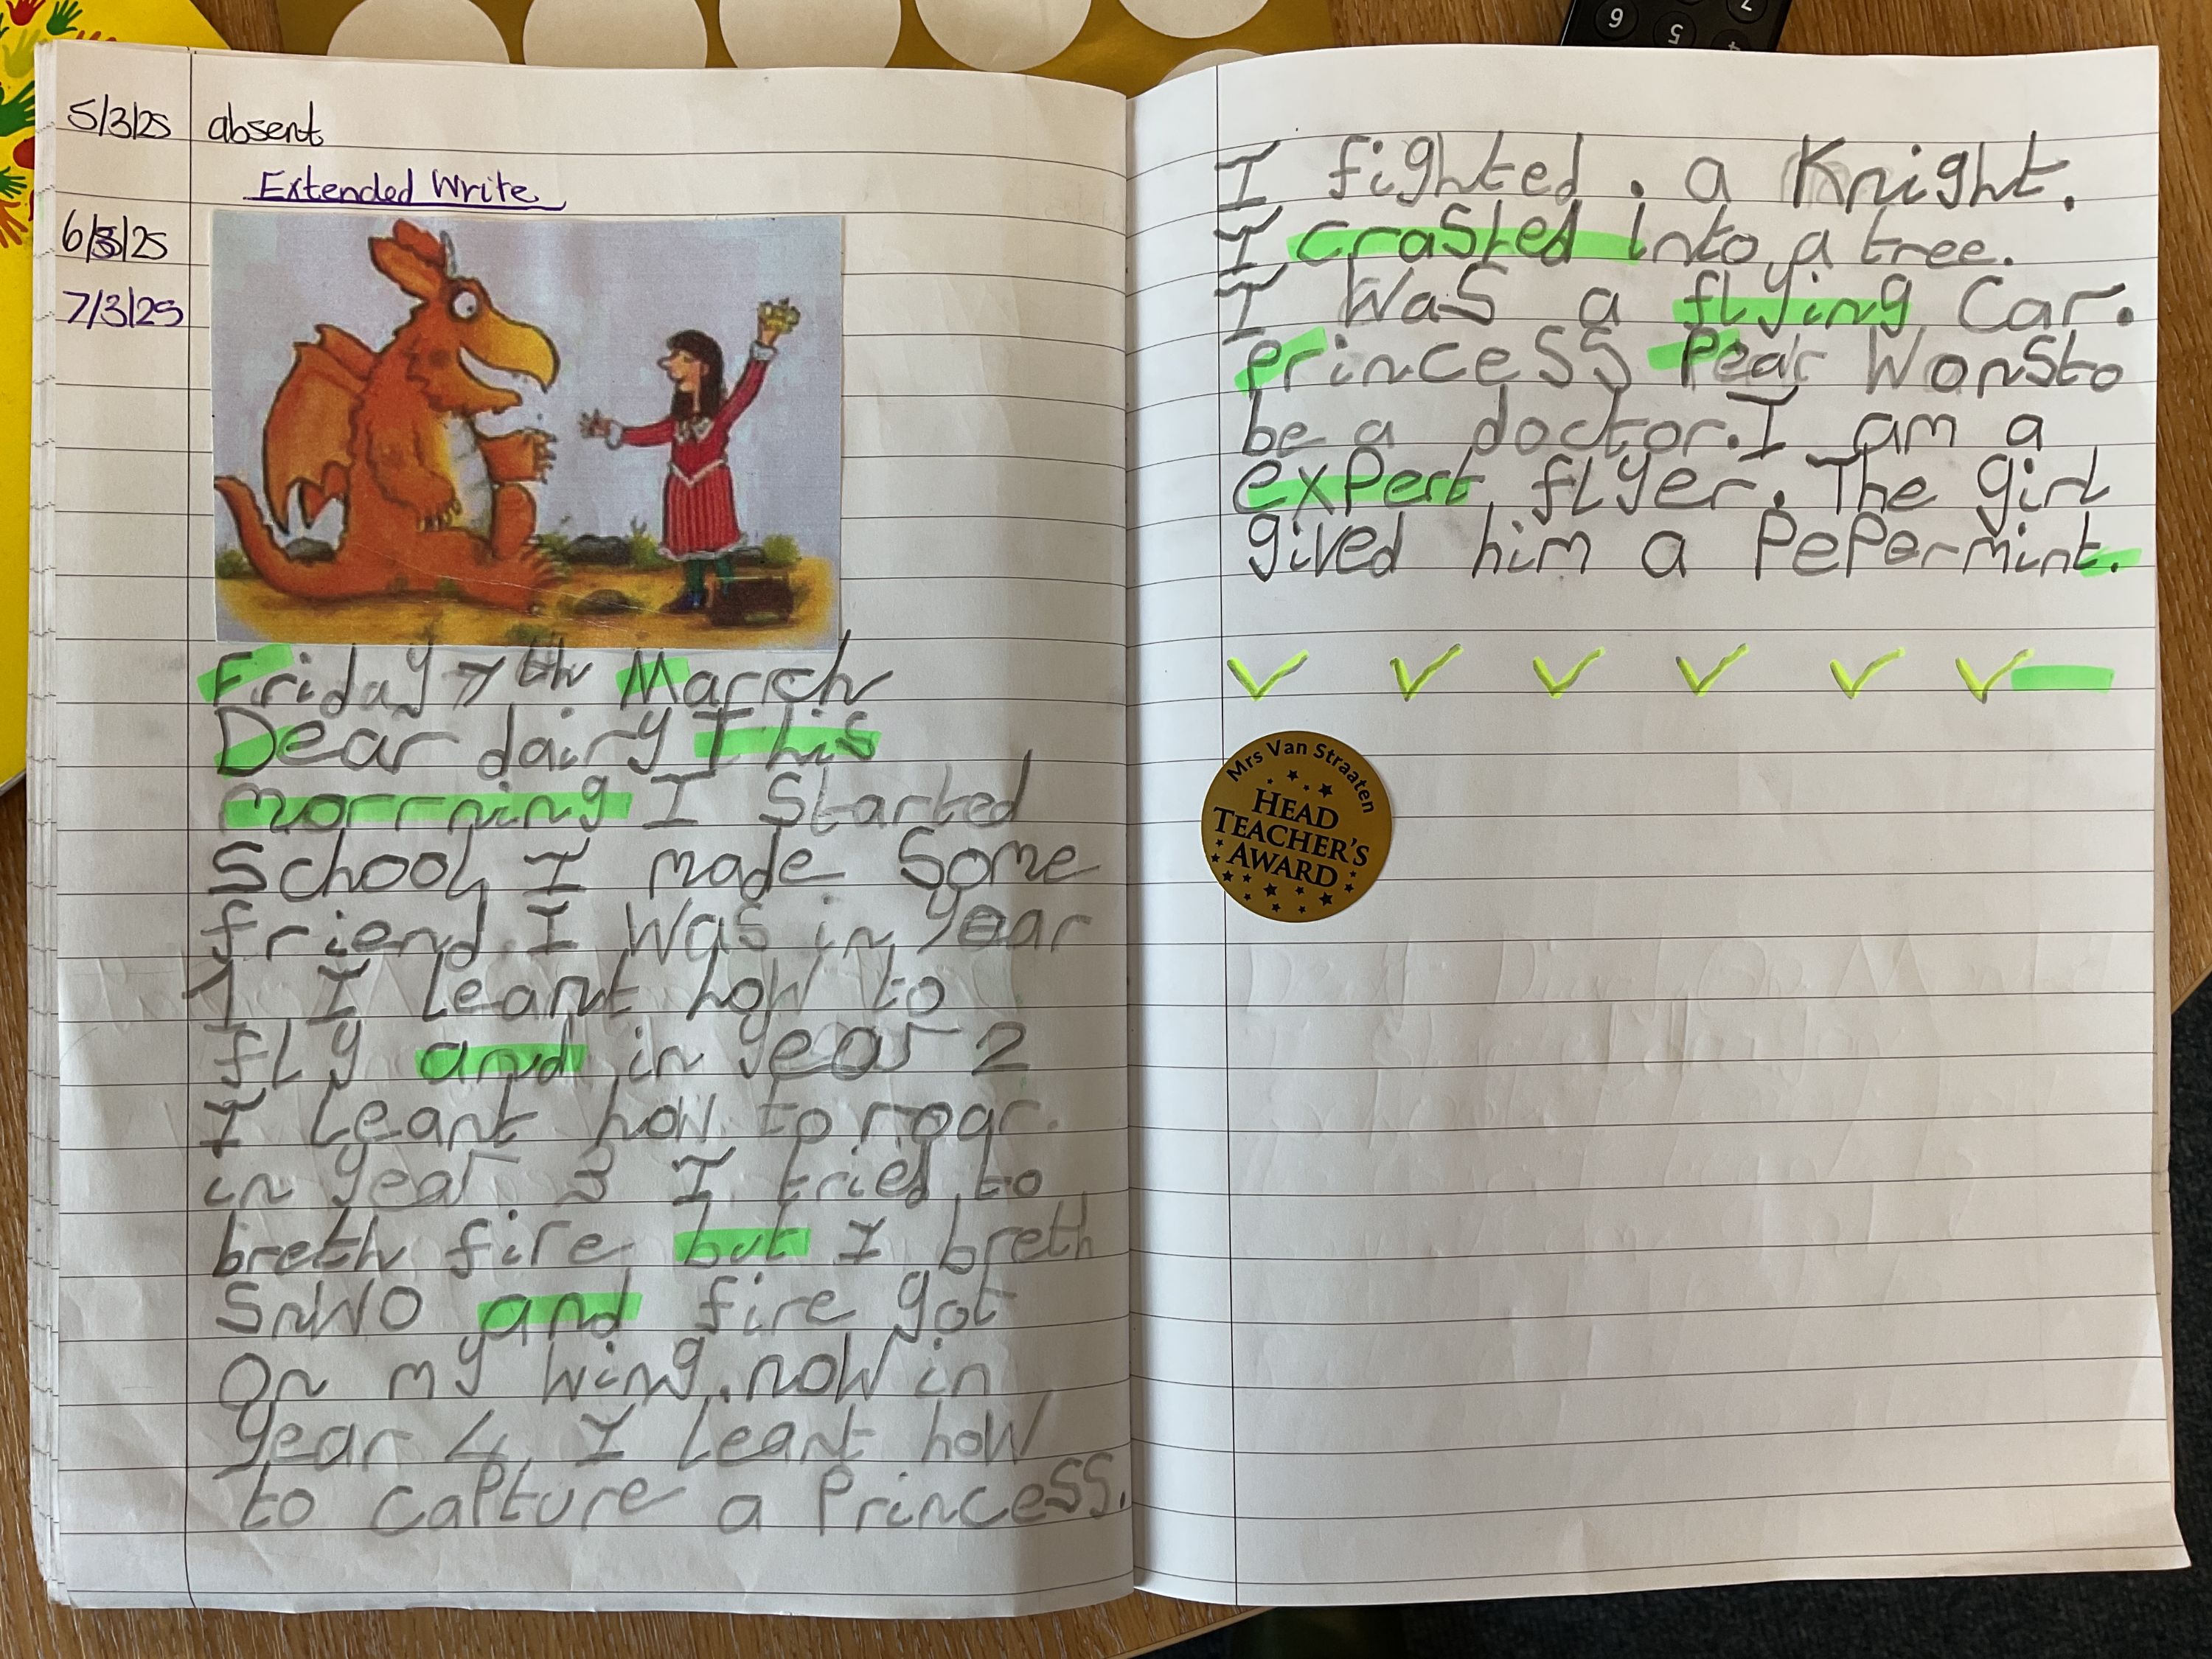 5/3/25 absent
Extended Write
6/3/25
7/3/25
Friday 7th March
Dear dairy This
morning I Started
School, I made Some
friend. I was in year
1 I leant how to
fly and in year 2
I leant how to roar.
in year 3 I tried to
breth fire but I breth
SnWo and fire got
On my wing. now in
year 4 I leant how
to capture a Princess.
I fighted . a Knight.
I crashed into a tree.
I was a flying Car.
Princess Pearl Wonsto
be a doctor. I am a
expert flyer. The girl
gived him a PePermint.
Mrs Van Straaten
HEAD
TEACHER'S
AWARD
6
5
4
7